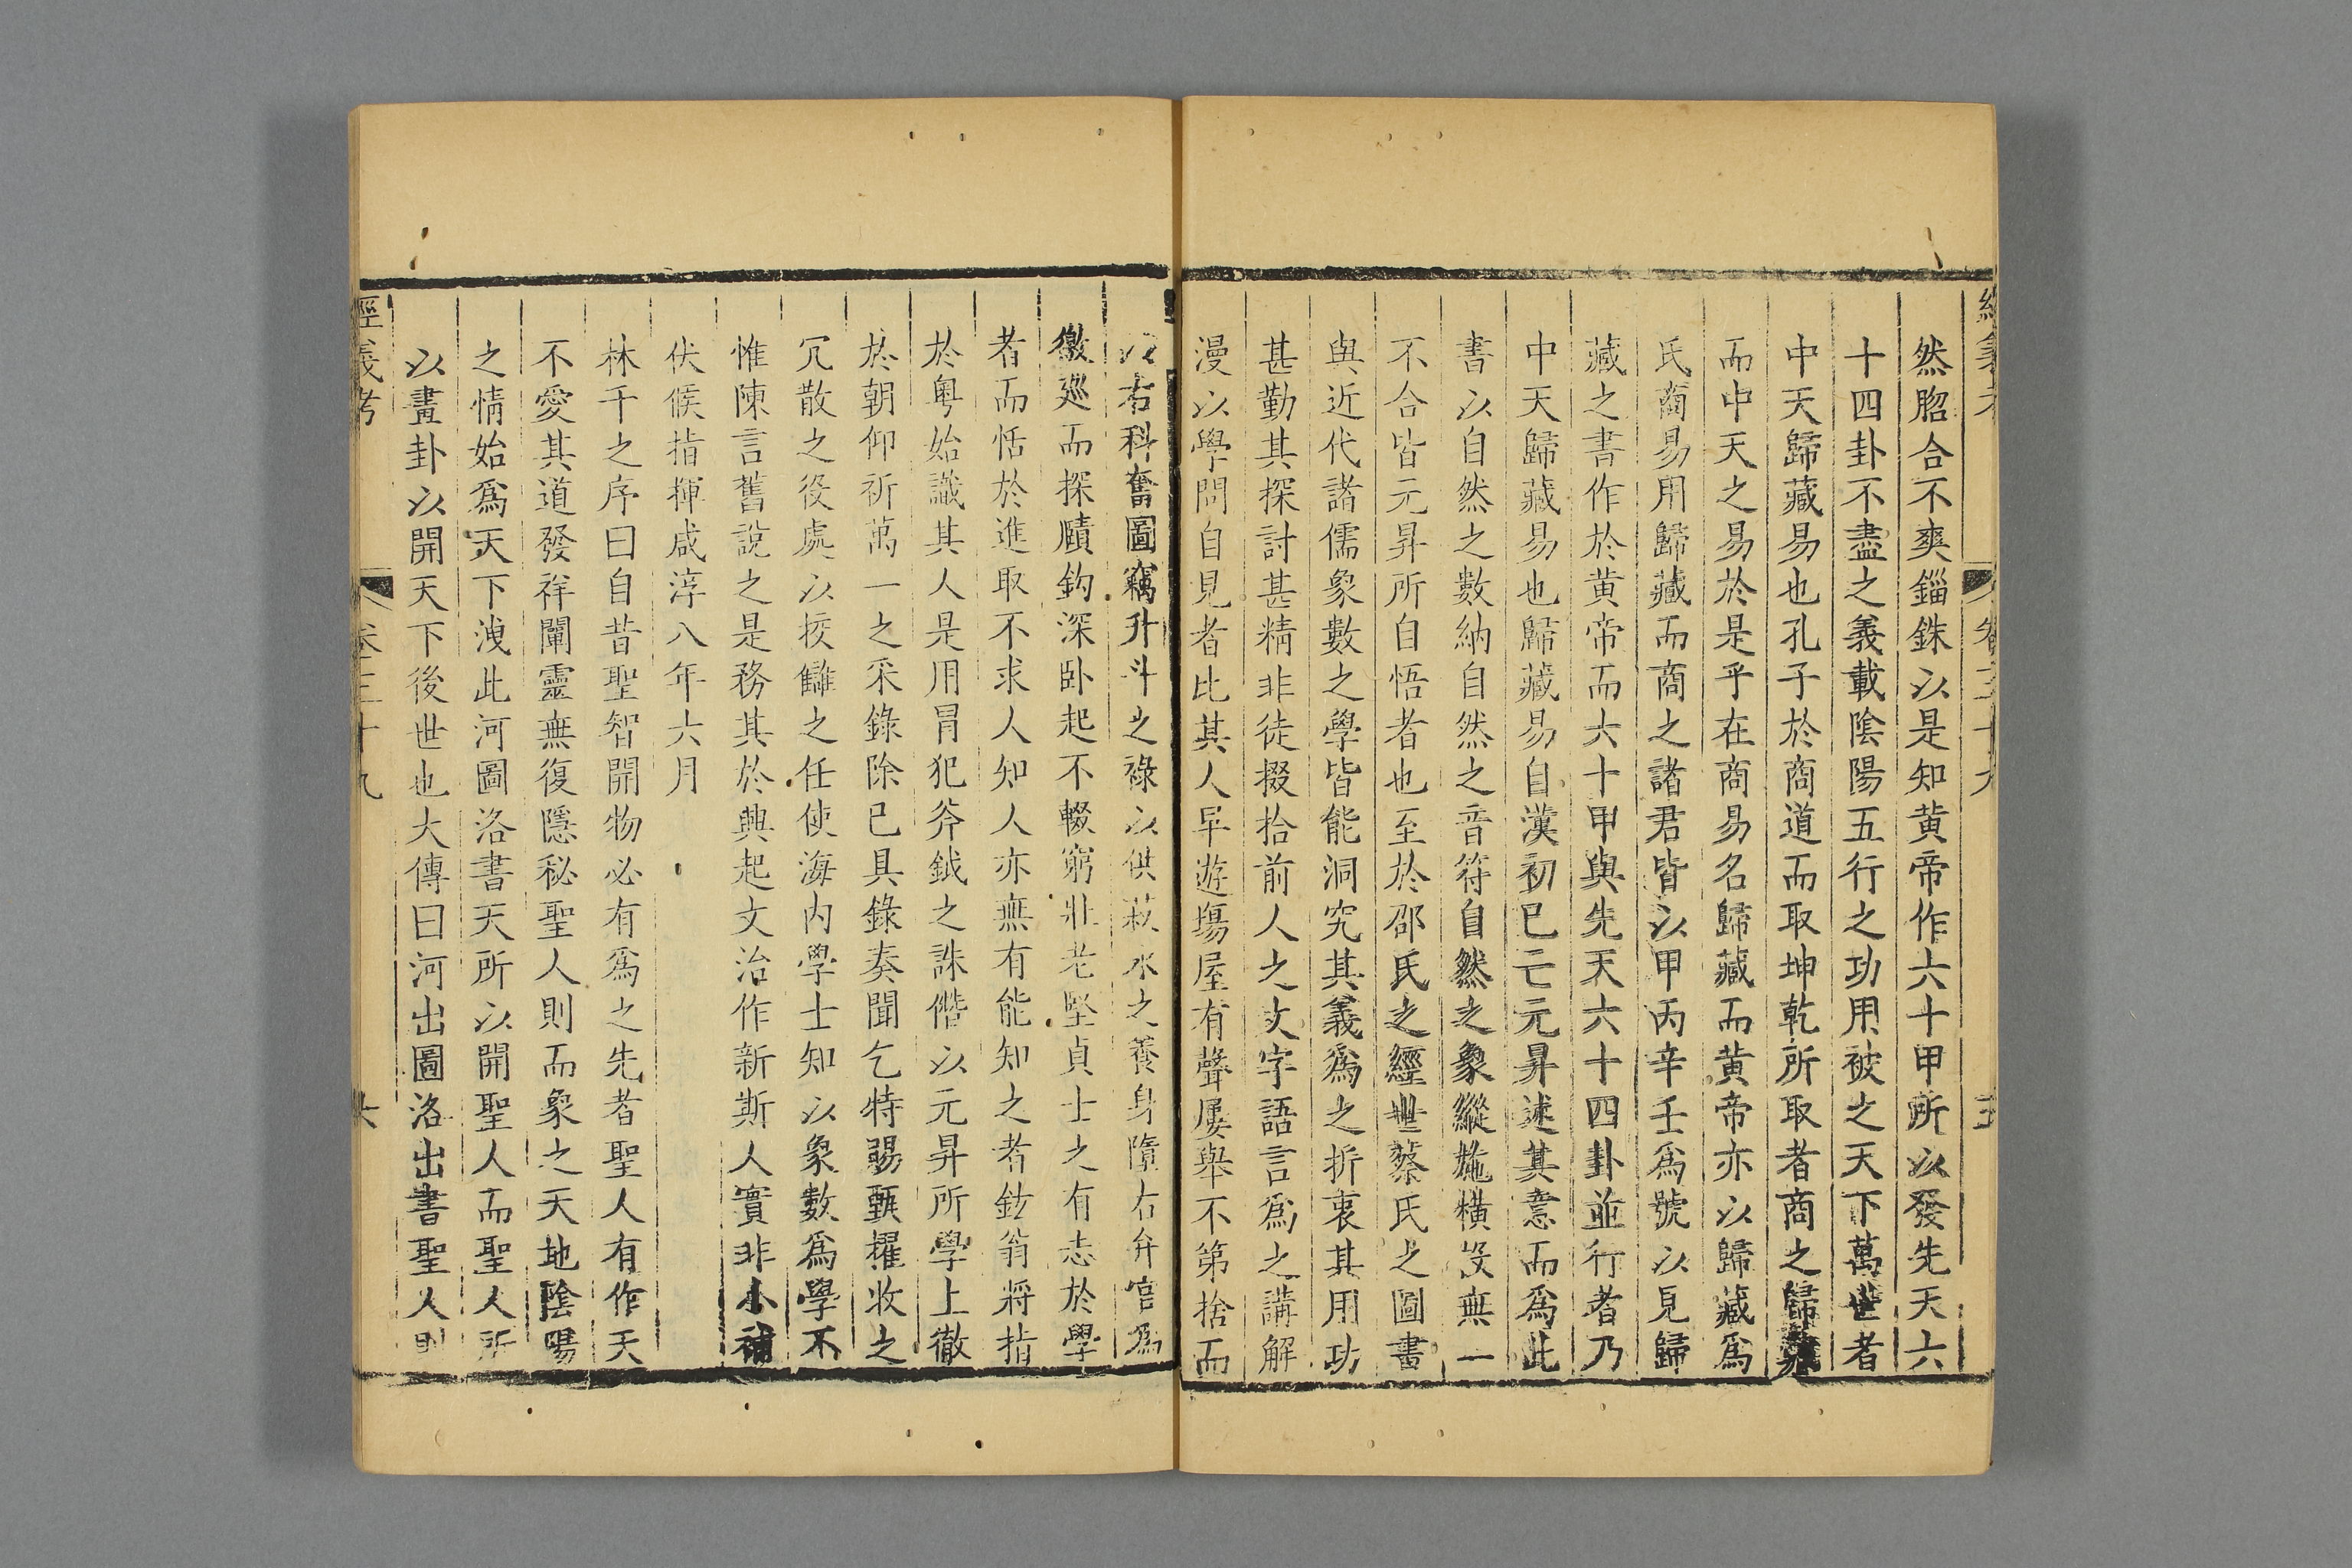 然脗合不爽錙銖以是知黃帝作六十甲所以發先天六
十四卦不盡之義載陰陽五行之功用被之天下萬世者
中天歸藏易也孔子於商道而取坤乾所取者商之歸藏
而中天之易於是乎在商易名歸藏而黃帝亦以歸藏爲
氏商易用歸藏而商之諸君皆以甲丙辛壬爲號以見歸
藏之書作於黃帝而六十甲與先天六十四卦並行者乃
中天歸藏易也歸藏易自漢初已亡元昇述其意而爲此
書以自然之數納自然之音符自然之象縱施橫設無一
不合皆元昇所自悟者也至於邵氏之經世蔡氏之圖書
與近代諸儒象數之學皆能洞究其義爲之折衷其用功
甚勤其探討甚精非徒掇拾前人之文字語言爲之講解
漫以學問自見者比其人早遊塲屋有聲屢舉不第捨而
以右科奮圖竊升斗之祿以供菽水之養身隨右弁官爲
徼巡而探賾鈎深卧起不輟窮壯老堅貞士之有志於學
者而恬於進取不求人知人亦無有能知之者鉉翁將指
於粵始識其人是用冒犯斧鉞之誅僭以元昇所學上徹
於朝仰祈萬一之采錄除已具錄奏聞乞特賜甄擢收之
冗散之役處以挍讎之任使海內學士知以象數爲學不
惟陳言舊說之是務其於興起文治作新斯人實非小補
伏候指揮咸淳八年六月
林千之序曰自昔聖智開物必有爲之先者聖人有作天
不愛其道發祥闡靈無復隱秘聖人則而象之天地陰陽
之情始爲天下洩此河圖洛書天所以開聖人而聖人所
以畫卦以開天下後世也大傳曰河出圖洛出書聖人則
經義考